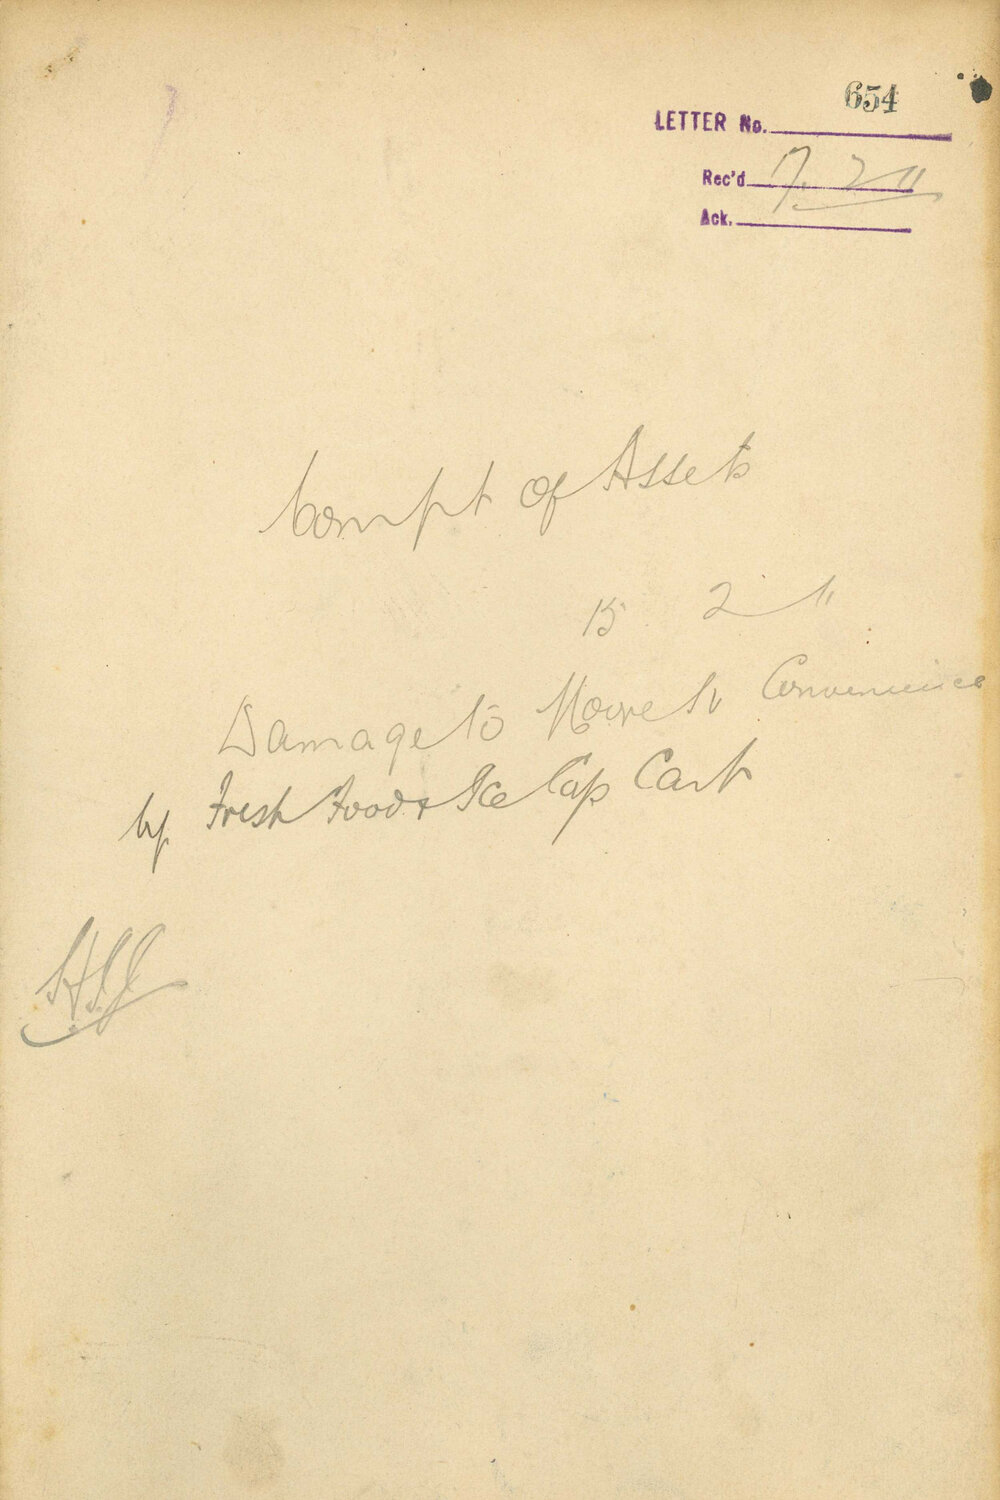 654
LETTER No.
Rec'd 17. 2 11
Ack.
Compt of Assets
15 2 11
Damage to Moore St Convenience
by Fresh Food & Ice Co's Cart